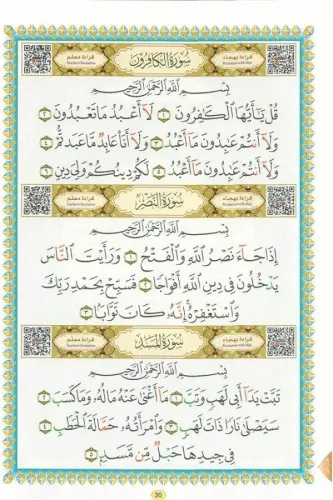 قراءة معلم
Teacher's Recitation
سورة الكافرون
قراءة بهجاء
بِسْمِ اللَّهِ الرَّحْمَٰنِ الرَّحِيمِ
قُلْ يَٰٓأَيُّهَا الْكَٰفِرُونَ ١ لَآ أَعْبُدُ مَا تَعْبُدُونَ ٢
وَلَآ أَنتُمْ عَٰبِدُونَ مَآ أَعْبُدُ ٣ وَلَآ أَنَا۠ عَابِدٌ مَّا عَبَدتُّمْ ٤
وَلَآ أَنتُمْ عَٰبِدُونَ مَآ أَعْبُدُ ٥ لَكُمْ دِينُكُمْ وَلِيَ دِينِ ٦
قراءة معلم
Teacher's Recitation
سورة النصر
قراءة بهجاء
بِسْمِ اللَّهِ الرَّحْمَٰنِ الرَّحِيمِ
إِذَا جَآءَ نَصْرُ اللَّهِ وَالْفَتْحُ ١ وَرَأَيْتَ النَّاسَ
يَدْخُلُونَ فِي دِينِ اللَّهِ أَفْوَاجًا ٢ فَسَبِّحْ بِحَمْدِ رَبِّكَ
وَاسْتَغْفِرْهُ إِنَّهُۥ كَانَ تَوَّابًا ٣
قراءة معلم
Teacher's Recitation
سورة المسد
قراءة بهجاء
بِسْمِ اللَّهِ الرَّحْمَٰنِ الرَّحِيمِ
تَبَّتْ يَدَآ أَبِي لَهَبٍ وَتَبَّ ١ مَآ أَغْنَىٰ عَنْهُ مَالُهُۥ وَمَا كَسَبَ ٢
سَيَصْلَىٰ نَارًا ذَاتَ لَهَبٍ ٣ وَامْرَأَتُهُۥ حَمَّالَةَ الْحَطَبِ ٤
فِي جِيدِهَا حَبْلٌ مِّن مَّسَدٍ ٥
30